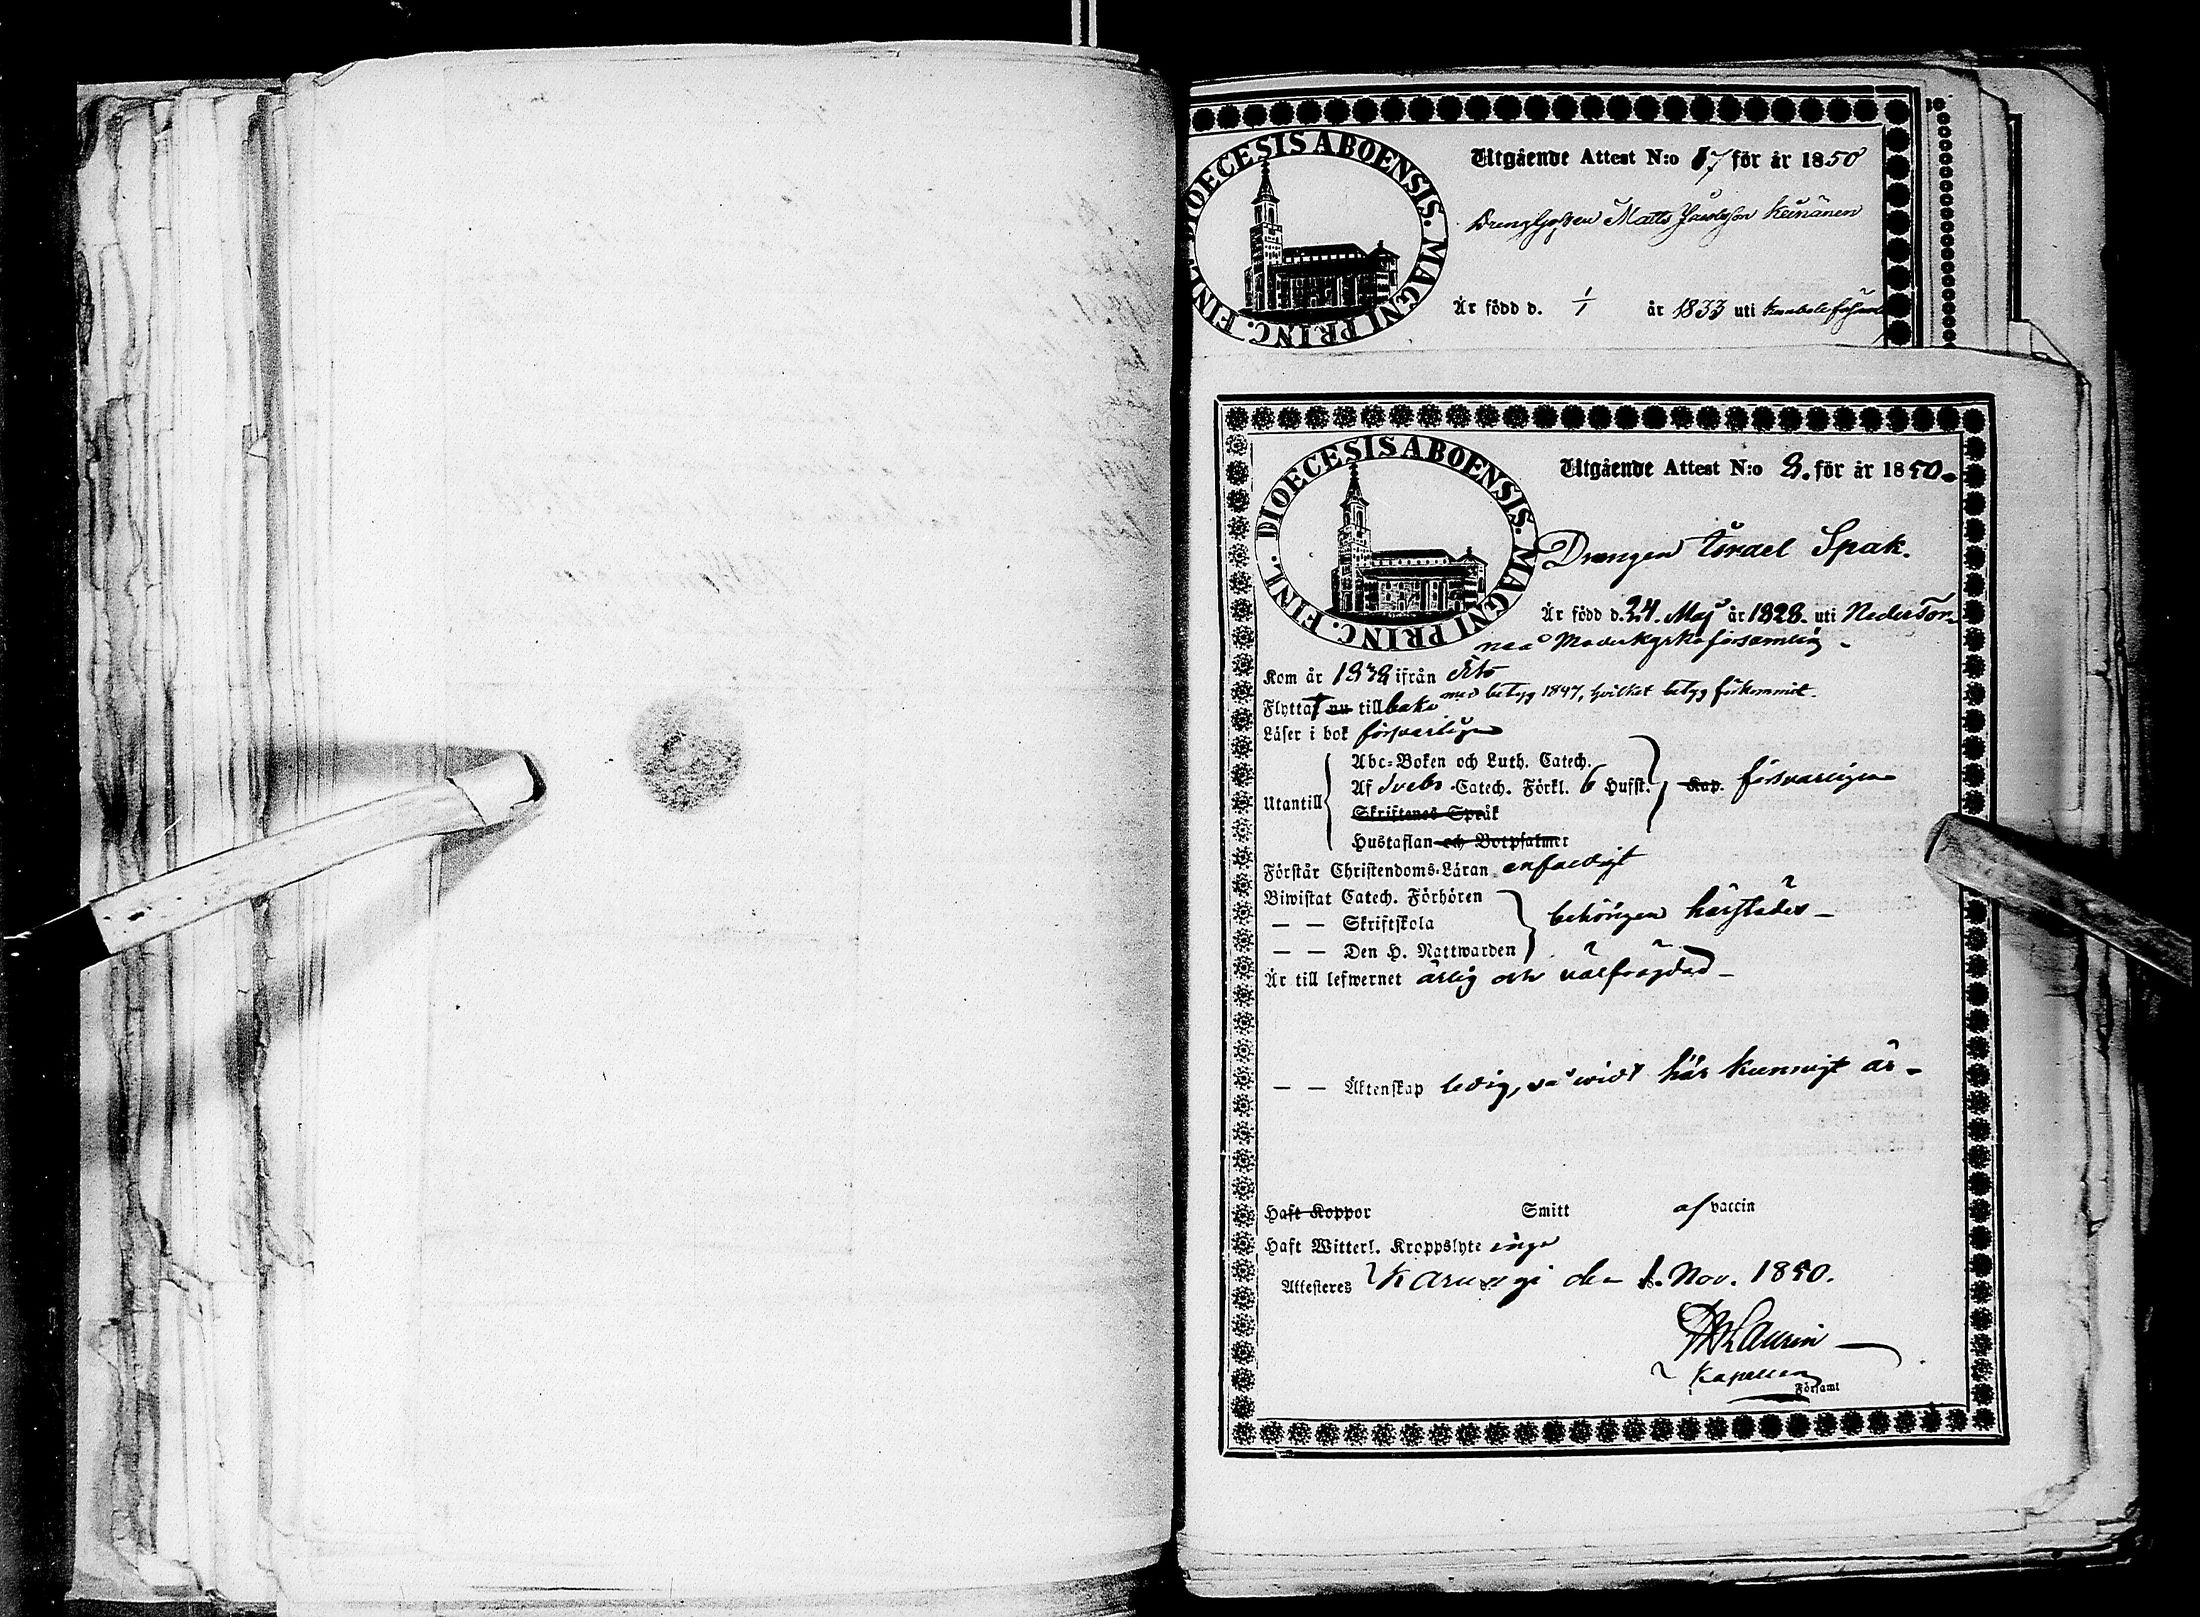 DIOECESIS ABOENSIS. MAGNI PRINC. FINL.
Utgående Attest N:o 17 för år 1850
Matts Keinänen
Är född d. 1/1 år 1833 uti
DIOECESIS ABOENSIS. MAGNI PRINC. FINL.
Utgående Attest N:o 8. för år 1850.
Drengen Israel Spak.
Är född d. 24. Maj år 1828. uti NederTor-
neå Moderkyrkoförsamling -
Kom år 1838 ifrån dito
Flyttat nu tillbaka med betyg 1847, hvilket betyg förkommit.
Läser i bok försvarligen
Abc-Boken och Luth. Catech.
Utantill Af Svebs Catech. Förkl. 6 Hufst. Kap. försvarligen
Skriftenes Språk
Hustaflan och Botpsalmer
Förstår Christendoms-Läran enfaldigt
Biwistat Catech. Förhören
— — Skriftskola behörigen härstädes -
— — Den H. Nattwarden
Är till lefwernet ärlig och välfrägdad -
— — Äktenskap ledig, så vidt här kunnigt är -
Haft Koppor Smitt af vaccin
Haft Witterl. Kroppslyte inga
Attesteres Karungi den 1. Nov. 1850.
Laurin
Kapellan
Församl